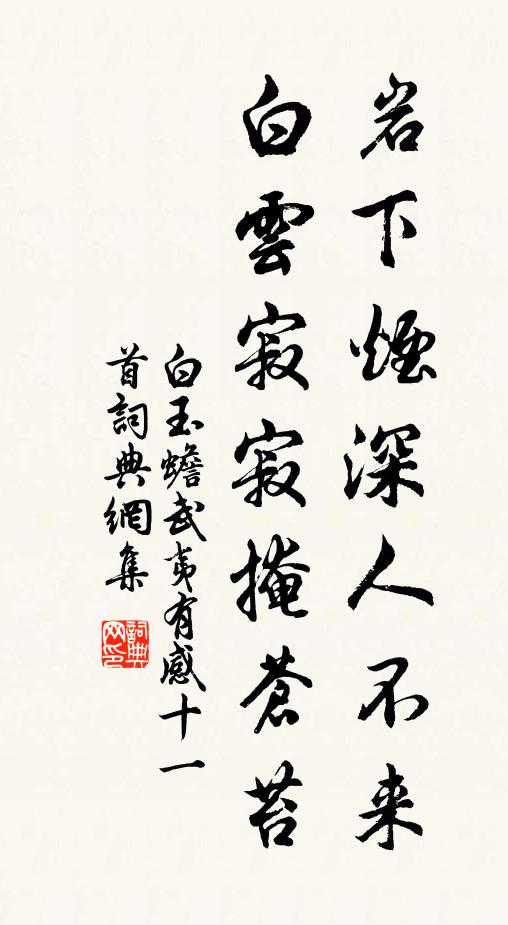 岩下煙深人不来
白雲寂寂掩蒼苔
白玉蟾武夷有感十一
首詞典網集
詞典
网印